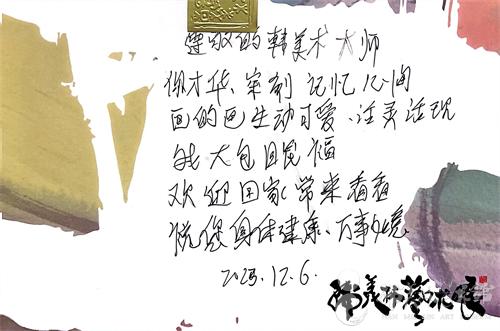 尊敬的韩美术大师
你才华、牢刻记忆心间
画的画生动可爱、活灵活现
我大包眼福
欢迎回家常来看看
祝您身体健康、万事如意
2023.12.6.
韩美林艺术展